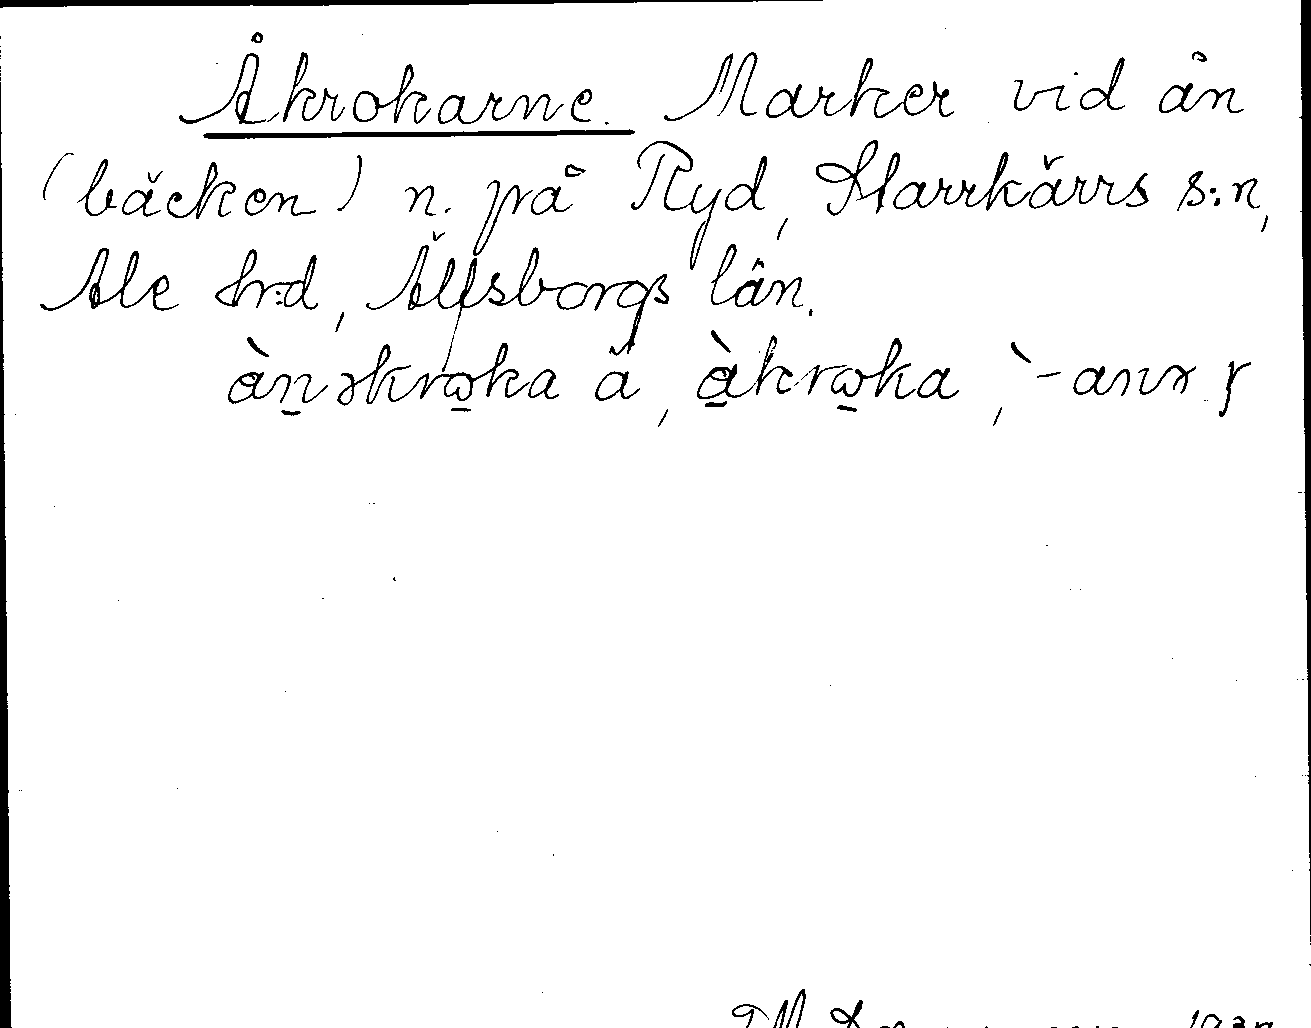 Åkrokarne. Marker vid ån
(bäcken) n. på Ryd, Starrkärrs s:n,
Ale hrd, Älfsborgs län.
ànəkrωka ä, àkrωka, `-anə ʃ